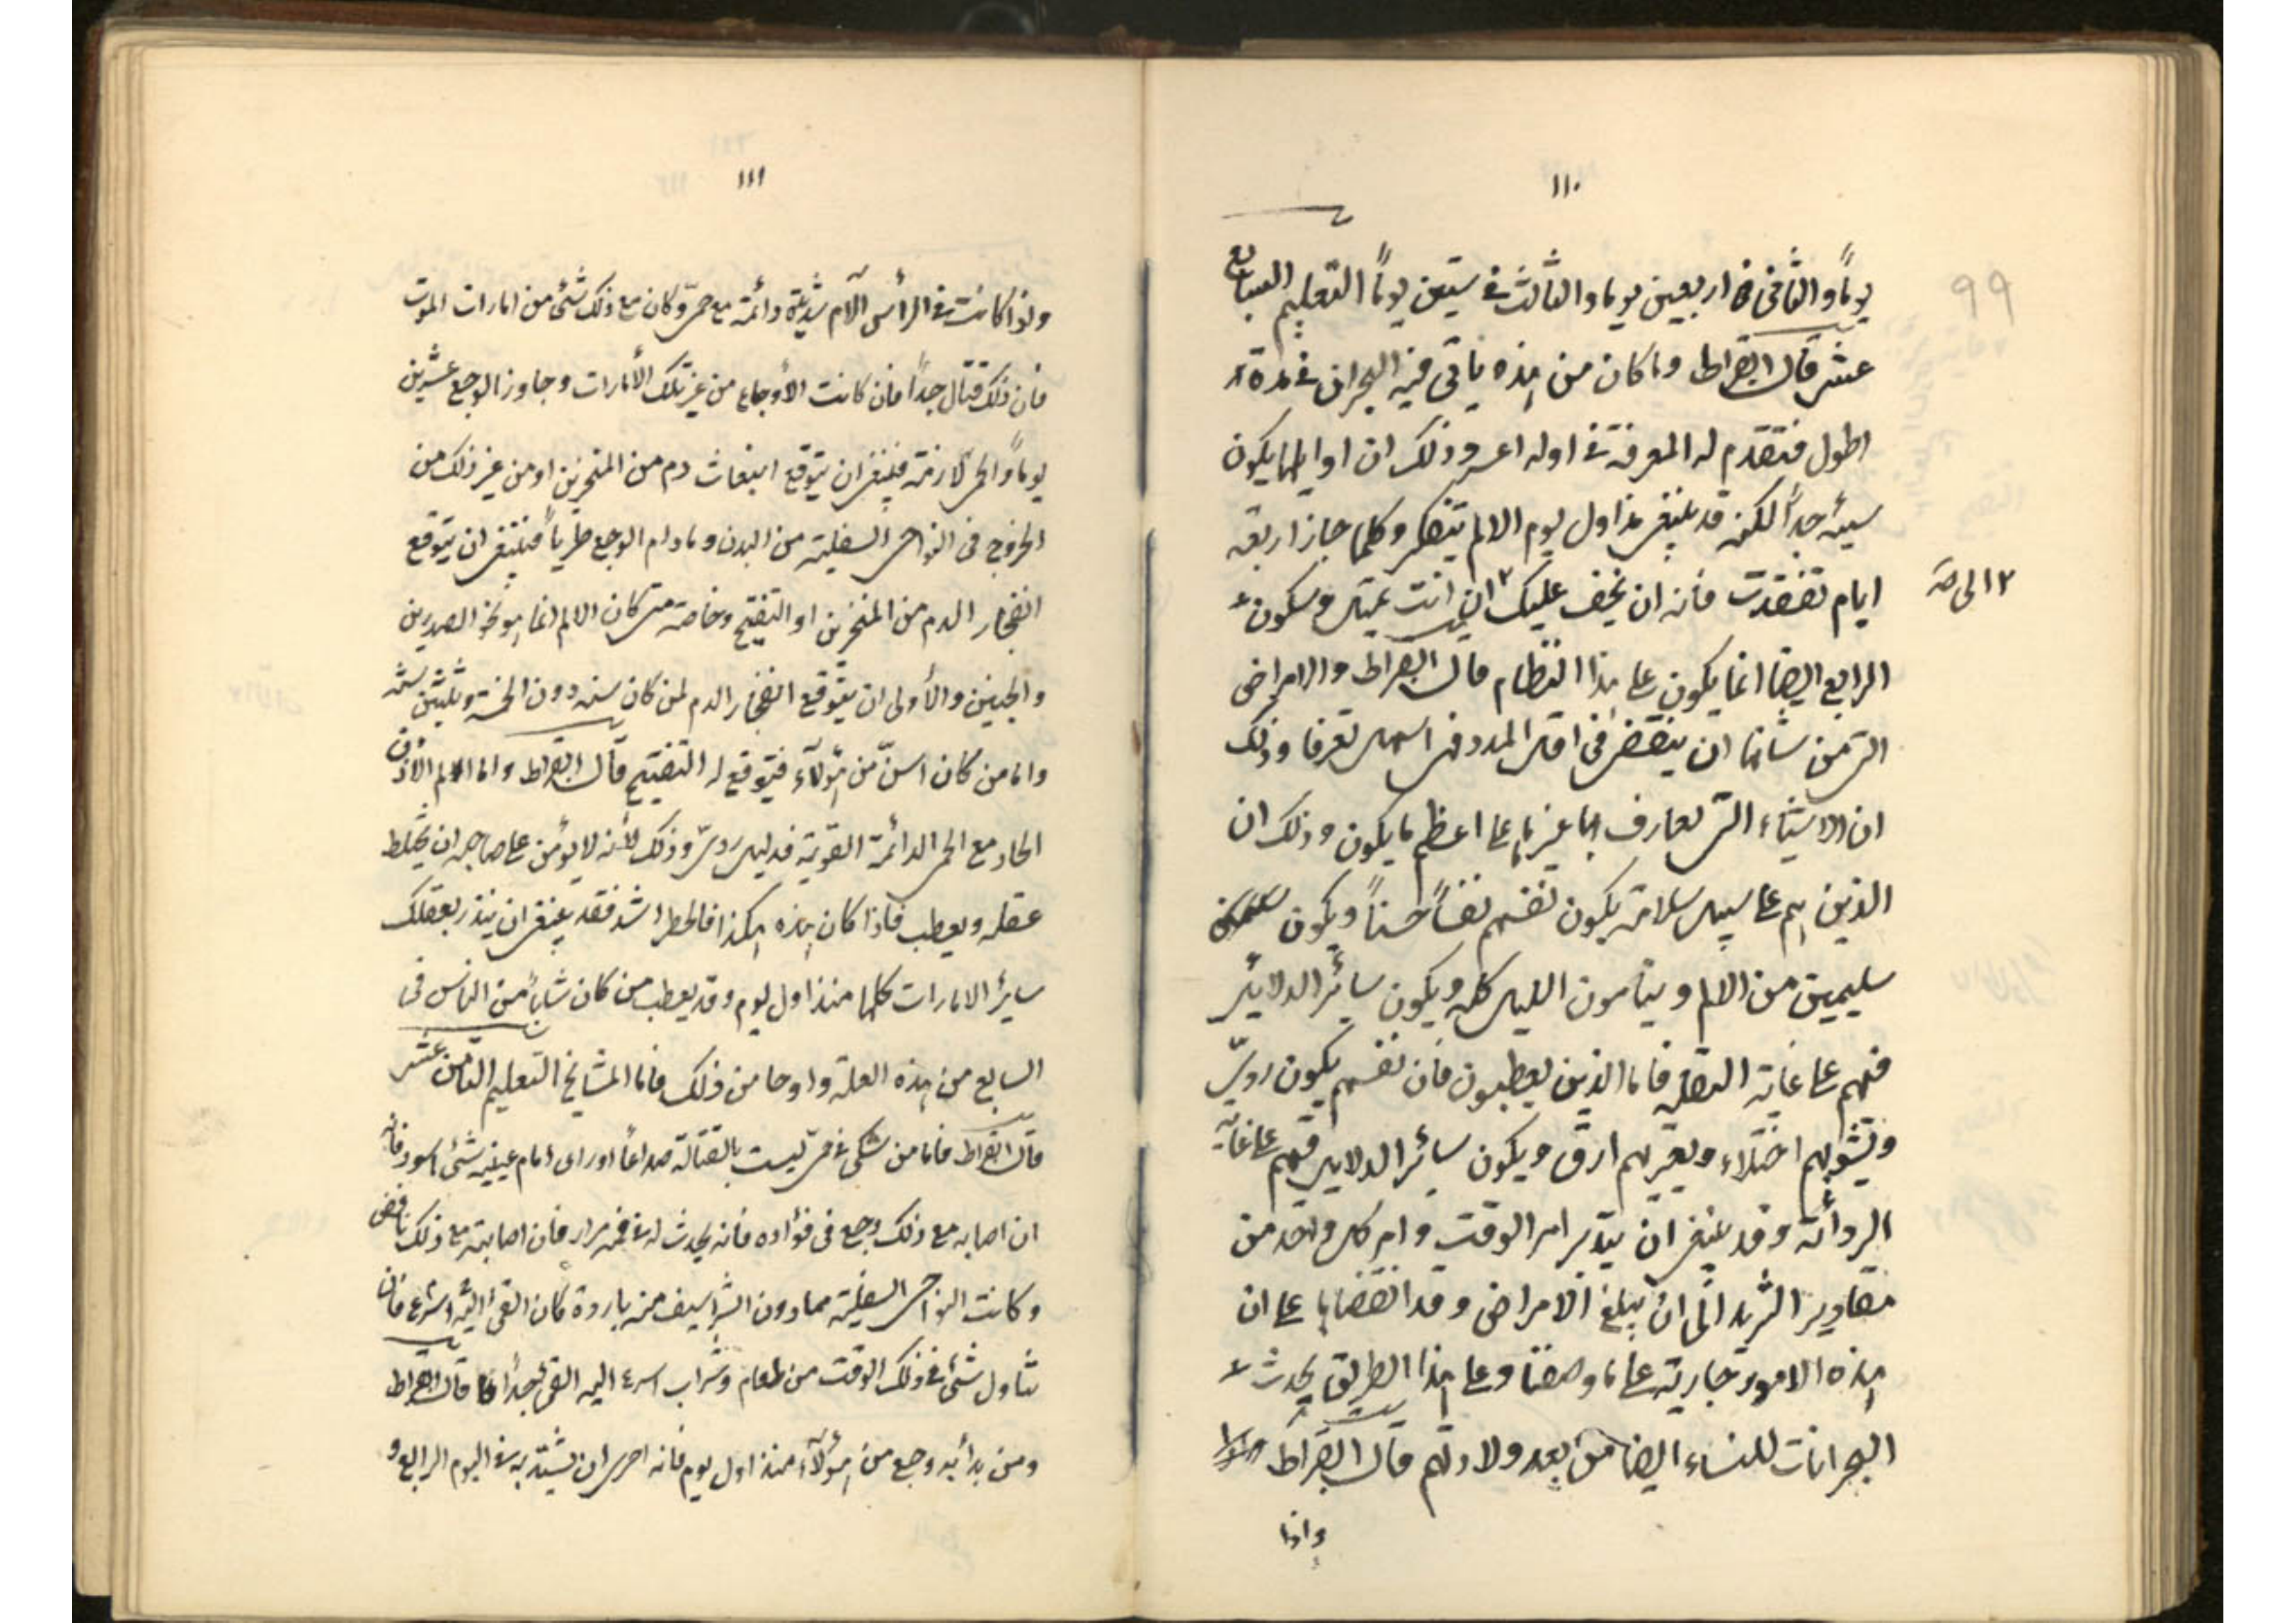 ١١٠
٩٩
يوماً والثاني في اربعين يوما والثالث في ستين يوماً التعليم السابع
عشر قال ابقراط وما كان من هذه ياتى فيه البحران في مدة
اطول فتقدم له المعرفة في اوله اعسر وذلك ان اوايلها يكون
سيئه جداً لكنه قد ينبغي مذ اول يوم الالم يتفكر وكلما جاز اربعة
ايام تفقدت فانه ان يخف عليك ٢ اين انت تميل وسكون
٢ الى صـ
الرابع ايضا انما يكون على هذا النظام قال ابقراط والامراض
التي من شانها ان ينقضى في اقل المدد فهى اسهل تعرفا وذلك
ان الاشياء التي تعارف بها غيرها على اعظم ما يكون وذلك ان
الذين هم على سبيل سلامة يكون نفسهم نفساً حسناً ويكون
سليمين من الالم وينامون الليل كله ويكون سائر الدلايل
فيهم على غاية الثقة فاما الذين يعطبون فان نفسهم يكون رديّ
وتشوبهم اختلاء ويعتريهم ارق ويكون سائر الدلايل فيهم على غاية
الردائة وقد ينبغي ان يتدبر امر الوقت وامر كل واحد من
مقادير التزيد الى ان يبلغ الامراض وقد انقضايا على ان
هذه الامور جارية على ما وصفنا وعلى هذا الطريق يحدث
البحرانات للنساء ايضا من بعد ولادتهم قال ابقراط
واذا
١١١
واذا كانت في الرأس آلام شديدة دائمة مع حمى وكان مع ذلك شئ من امارات الموت
فان ذلك قتال جداً فان كانت الأوجاع من غير تلك الأمارات وجاوز الوجع عشرين
يوماً والحمى لازمة فينبغي ان يتوقع انبعاث دم من المنخرين او من غير ذلك من
الخروج فى النواحى السفلية من البدن وما دام الوجع طرياً فينبغي ان يتوقع
انفجار الدم من المنخرين او التفتيح وخاصة متى كان الالم انما هو نحو الصدرين
والجبينين والأولى ان يتوقع انفجار الدم لمن كان سنه دون الخمسة وثلثين سنة
واما من كان اسنّ من هؤلآء فيتوقع له التفتيح قال ابقراط واما الم الأذن
الحاد مع الحمى الدائمة القوية فدليل رديّ وذلك لأنه لا يؤمن على صاحبه ان يختلط
عقله ويعطب فاذا كان هذه هكذا فالخطر اشد فقد ينبغي ان ينذر بعقلك
سائر الامارات كلها منذ اول يوم وقد يعطب من كان شاباً من الناس فى
السابع من هذه العلة واوحا من ذلك فاما المشايخ التعليم الثامن عشر
قال ابقراط فاما من شكى في حمى ليست بالقتالة صداعاً اوراى امام عينيه شئ اسود فانه
ان اصابه مع ذلك وجع فى فؤاده فانه يحدث له قئ مرار فان اصابته مع ذلك نافض
وكانت النواحى السفلية مما دون الشراسيف منه باردة كان القئ اليه اسرع فان
تناول شئ في ذلك الوقت من طعام وشراب اسرع اليه القئ جداً قال ابقراط
ومن بدأ به وجع من هؤلآء منذ اول يوم فانه احرى ان يشتد به في اليوم الرابع و